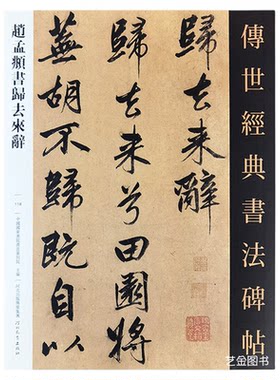 傳世經典書法碑帖
歸去来辭
歸去来兮田園將
蕪胡不歸既自以
趙孟頫書歸去來辭
艺金图书